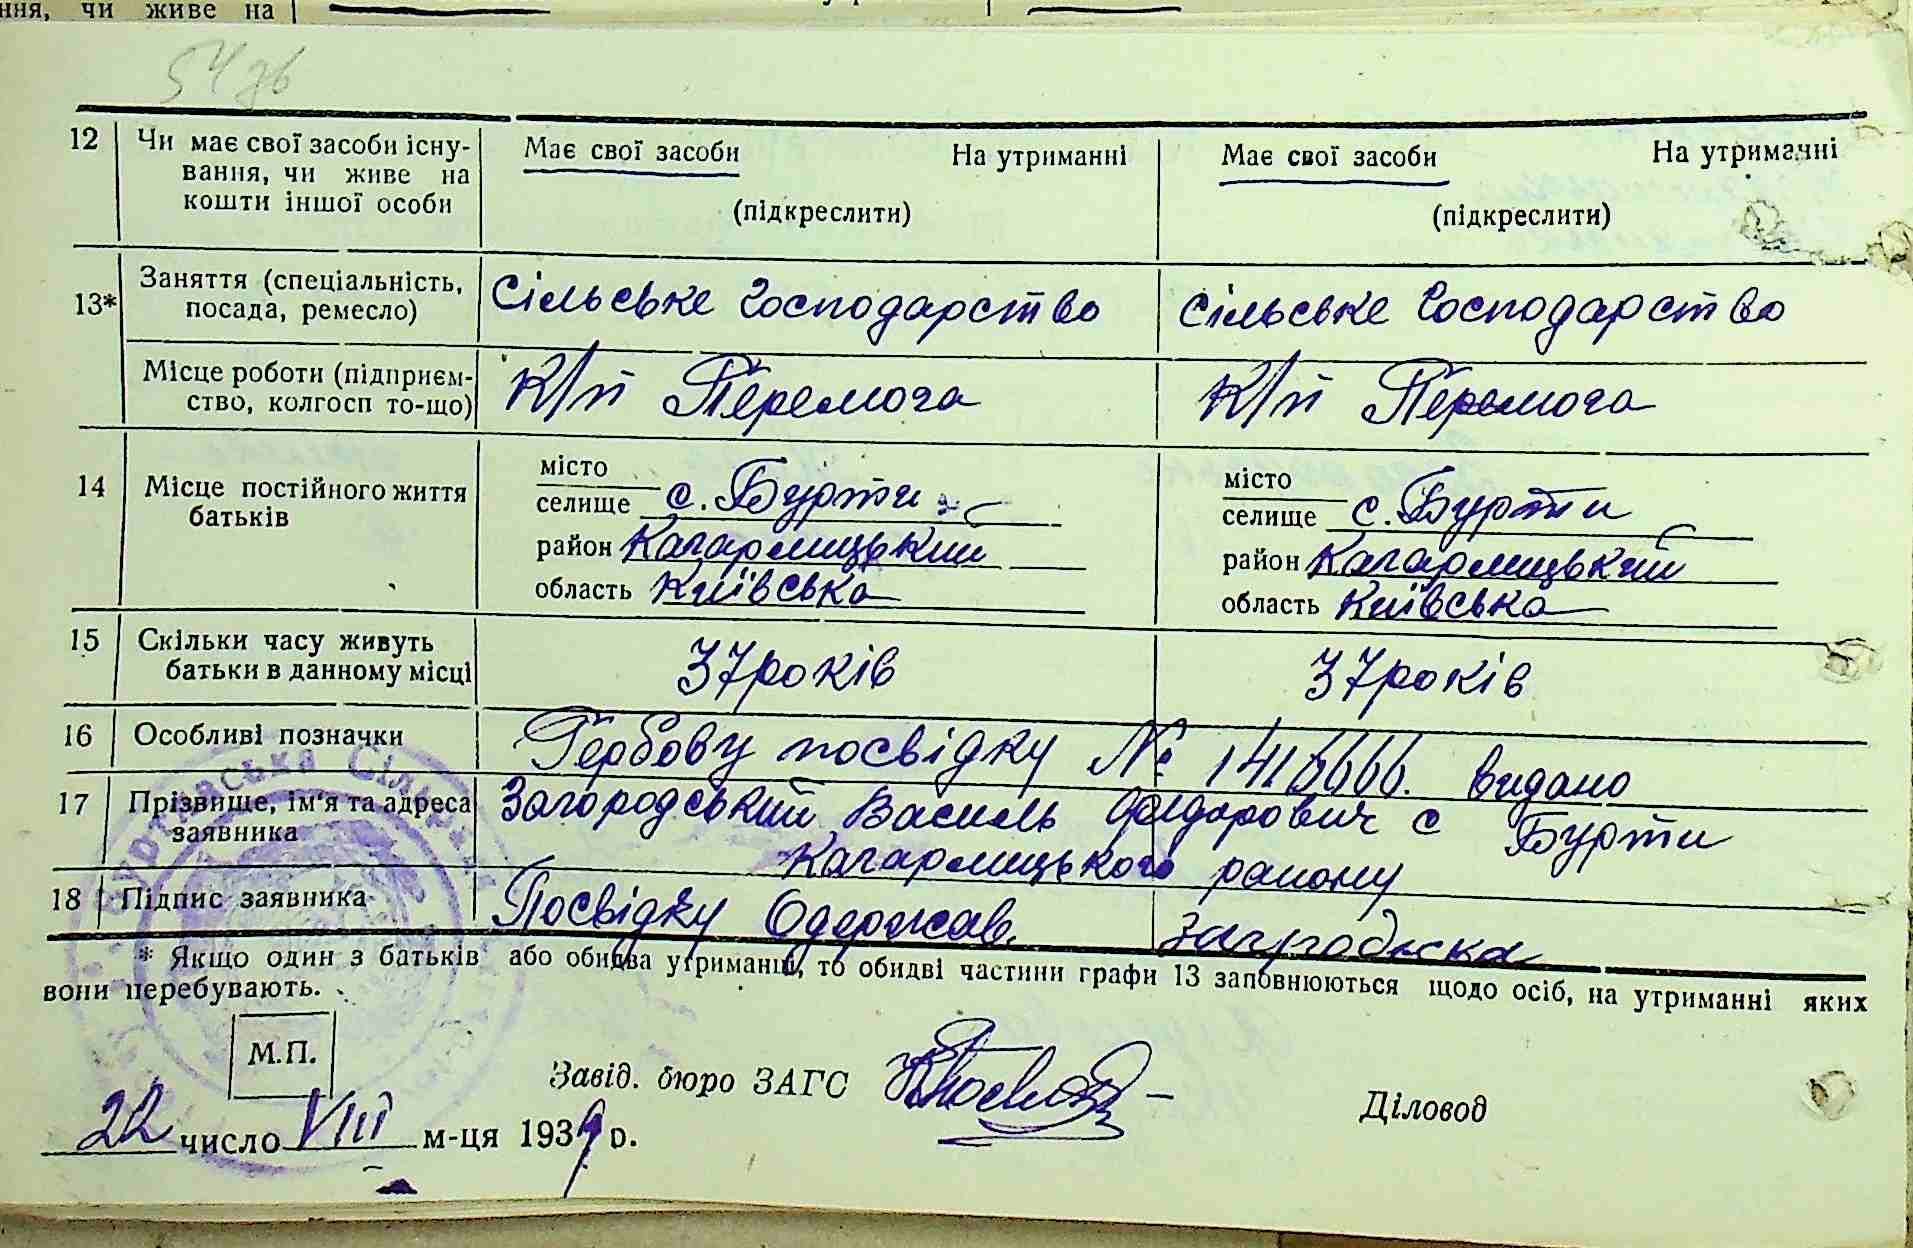 ння, чи живе на
54 зв
12 Чи має свої засоби існу- Має свої засоби На утриманні Має свої засоби На утриманні
вання, чи живе на
кошти іншої особи (підкреслити) (підкреслити)
13* Заняття (спеціальність, Сільське господарство Сільське господарство
посада, ремесло)
Місце роботи (підприєм- К/п Перемога К/п Перемога
ство, колгосп то-що)
14 Місце постійного життя місто місто
батьків селище с. Бурти селище с. Бурти
район Кагарлицький район Кагарлицький
область Київська область Київська
15 Скільки часу живуть 37 років 37 років
батьки в данному місці
16 Особливі позначки Гербову посвідку № 1416666. видано
17 Прізвище, ім'я та адреса Загородський Василь Федорович с Бурти
заявника Кагарлицького району
18 Підпис заявника Посвідку Одержав.
* Якщо один з батьків або обидва утриманці, то обидві частини графи 13 заповнюються щодо осіб, на утриманні яких
вони перебувають.
М.П.
Завід. бюро ЗАГС Діловод
22 число VIII м-ця 1939 р.